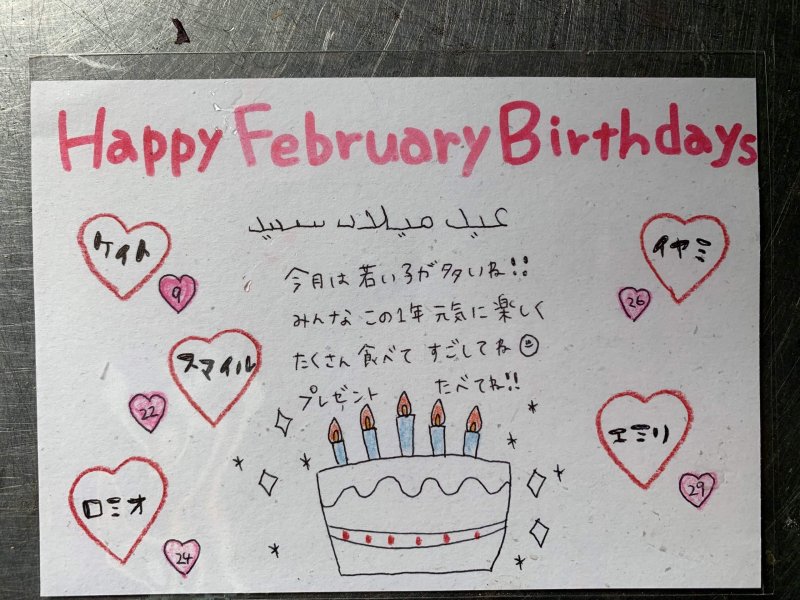 Happy February Birthdays
عيد ميلاد سعيد
今月は若い子が多いね!!
みんな この1年 元気に 楽しく
たくさん 食べて すごしてね
プレゼント たべてね!!
ケイト
9
スマイル
22
ロミオ
24
イヤミ
26
エミリ
29